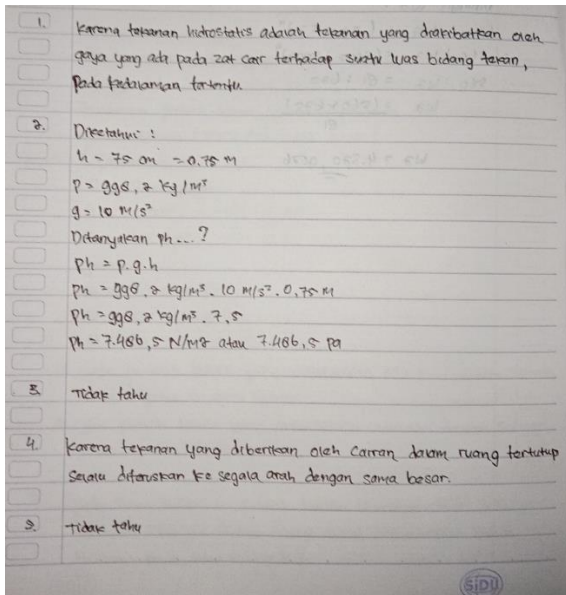 1. Karena tekanan hidrostatis adalah tekanan yang diakibatkan oleh
gaya yang ada pada zat cair terhadap suatu luas bidang tekan,
Pada kedalaman tertentu.
2. Diketahui :
h = 75 cm = 0,75 m
ρ = 998,2 kg/m³
g = 10 m/s²
Ditanyakan Ph...?
Ph = ρ.g.h
Ph = 998,2 kg/m³. 10 m/s². 0,75 m
Ph = 998,2 kg/m³. 7,5
Ph = 7.486,5 N/m2 atau 7.486,5 Pa
3. Tidak tahu
4. Karena tekanan yang diberikan oleh Cairan dalam ruang tertutup
Selalu diteruskan ke segala arah dengan sama besar.
5. Tidak tahu
SiDU